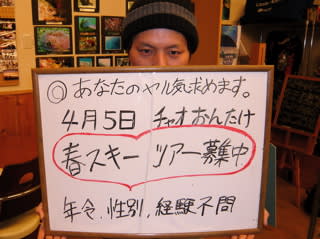 ◎あなたのヤル気求めます。
4月5日 チャオおんたけ
春スキー ツアー募集中
年令、性別、経験不問